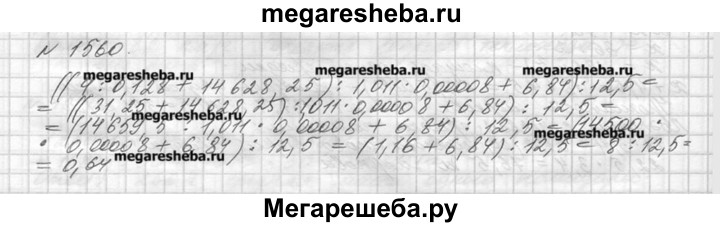 megaresheba.ru
N 1560.
megaresheba.ru megaresheba.ru
((4 : 0,128 + 14 628,25) : 1,011 · 0,00008 + 6,84) : 12,5 =
= ((31,25 + 14 628,25) : 1,011 · 0,00008 + 6,84) : 12,5 =
= (14659,5 : 1,011 · 0,00008 + 6,84) : 12,5 = (14500 ·
megaresheba.ru
· 0,00008 + 6,84) : 12,5 = (1,16 + 6,84) : 12,5 = 8 : 12,5 =
megaresheba.ru
= 0,64
Мегарешеба.ру